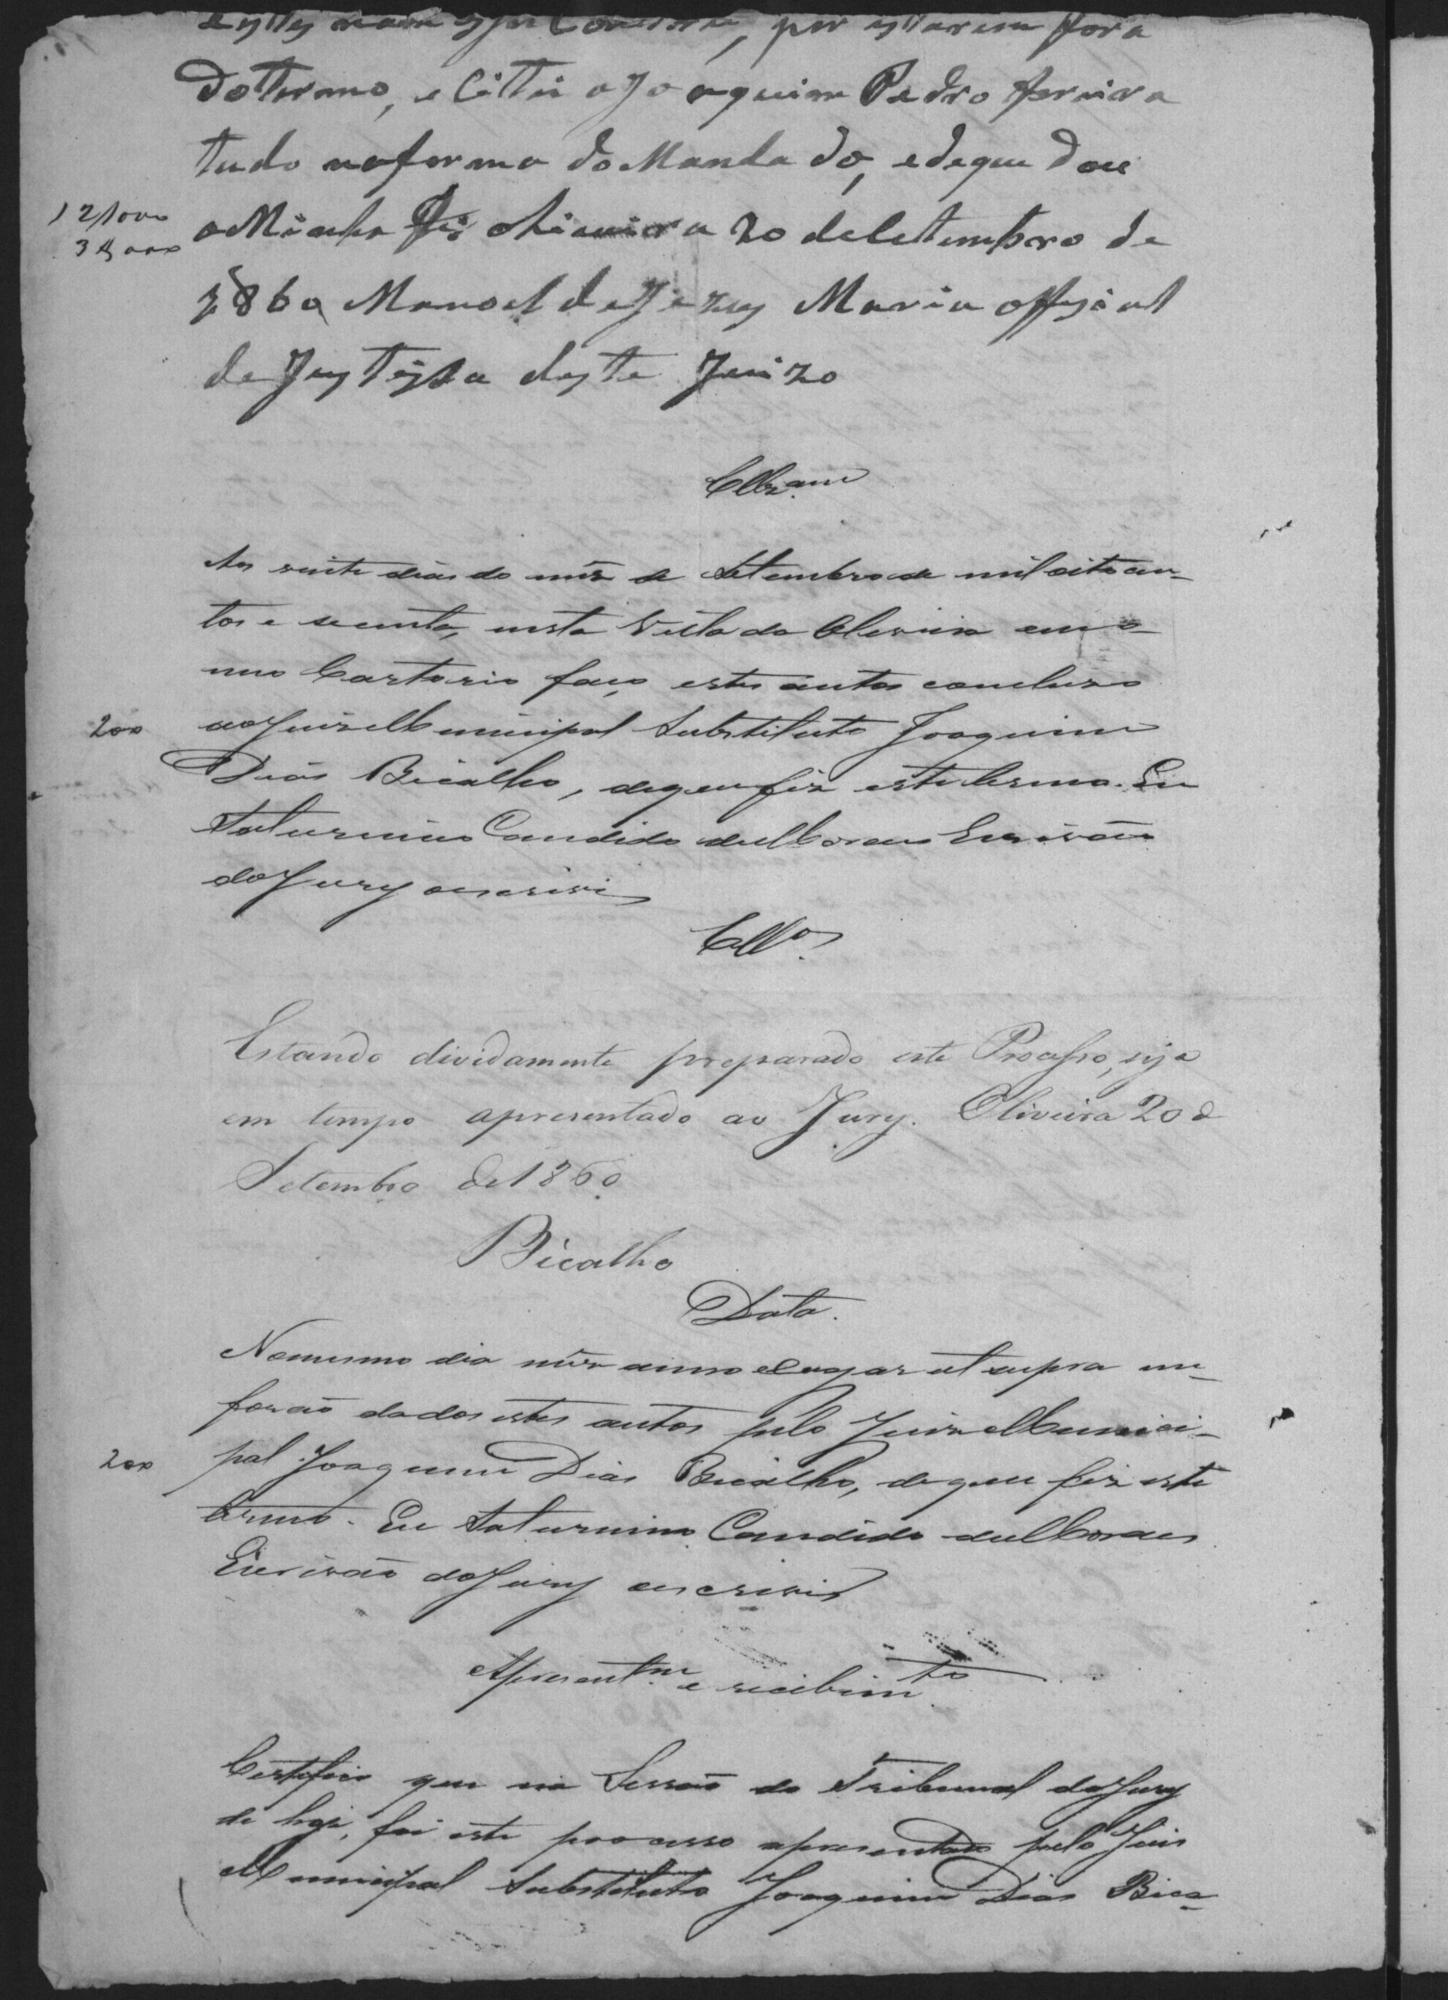 por estarem fora
do termo, e Cittei a Joaquim Pedro ferreira
tudo naforma do Manda do, edeque dou
aMinha fé oliveira 20 deCetembro de
1860 Manoel de Jezus Maria offisial
de Justissa deste Juizo
Clzam
Aos vinte dias do mês de Setembro de mil oito cen-
tos e secenta, nesta Villa da Oliveira em o
meo Cartorio faço estes autos concluzo
200
ao Juiz Municipal Substituto Joaquim
Dias Bicalho, dequefiz este termo. Eu
Saturnino Candido deMoraes Escrivão
doJury oescrivi
Cllos
Estando dividamente preparado este Processo, seja
em tempo apresentado ao Jury. Oliveira 20 de
Setembro de 1860
Bicalho
Data.
Nomesmo dia mês anno elugar ut supra me
forão dados estes autos pelo Juiz Munici-
200
pal Joaquim Dias Bicalho, deque fiz este
termo. Eu Saturnino Candido deMoraes
Escrivão doJury oescrivi
Apresentm e recebimto
Certefico que na Sessão do Tribunal doJury
de hoje, foi este processo apresentado pelo Juis
Municipal Substituto Joaquim Dias Bica-